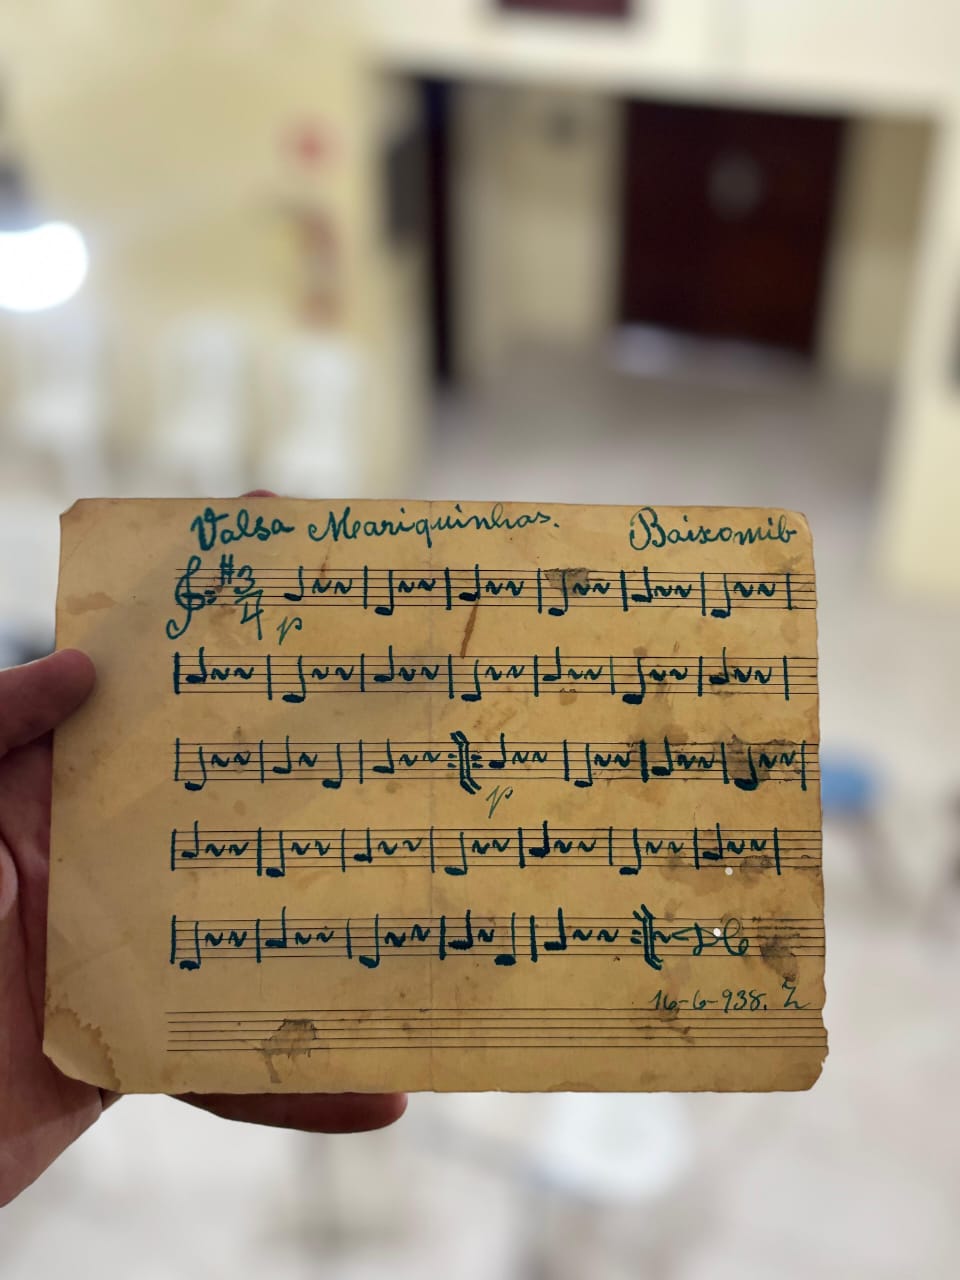 Valsa Mariquinhas. Baixo mib
3
4
p
p
16-6-938. Z